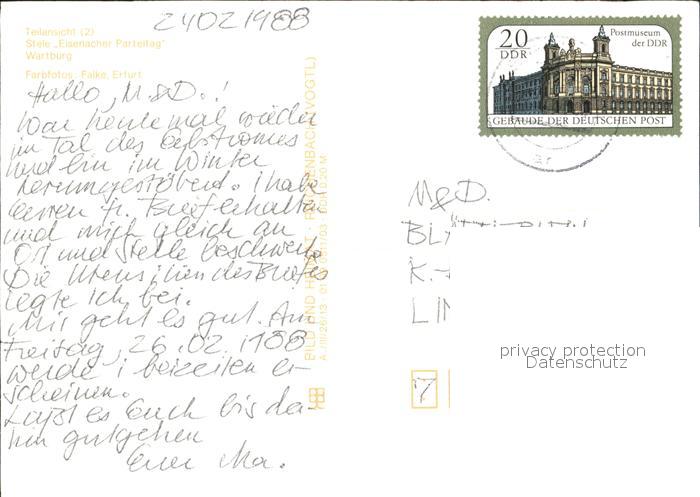 24021988
Teilansicht (2)
Stele „Eisenacher Parteitag"
Wartburg
Farbfotos: Falke, Erfurt
Hallo, M.&D.!
War heute mal wieder
im Tal des
und bin im Winter
herumgestöbert. i habe
fr. Brief erhalten
und mich gleich an
Ort und Stelle beschwert.
Die Utensilien des Briefes
legte ich bei.
Mir geht es gut. Am
Freitag, 26.02.1988
werde i beizeiten er-
scheinen.
Laßt es Euch bis da-
hin gutgehen
Euer Ma.
BILD UND HEIMAT · REICHENBACH (VOGTL)
20
DDR
Postmuseum
der DDR
GEBÄUDE DER DEUTSCHEN POST
M&D.
BL
K.-
LIN
7
privacy protection
Datenschutz